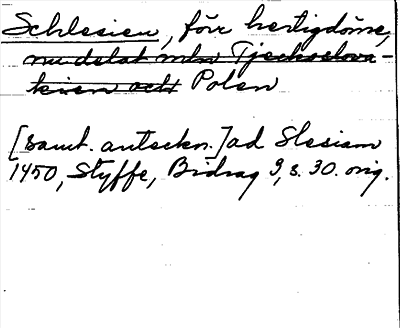 Schlesien, förr hertigdöme,
nu delat mln Tjeckoslova-
kien och Polen
[samt. anteckn.] ad Slesiam
1450, Styffe, Bidrag 3, s. 30. orig.